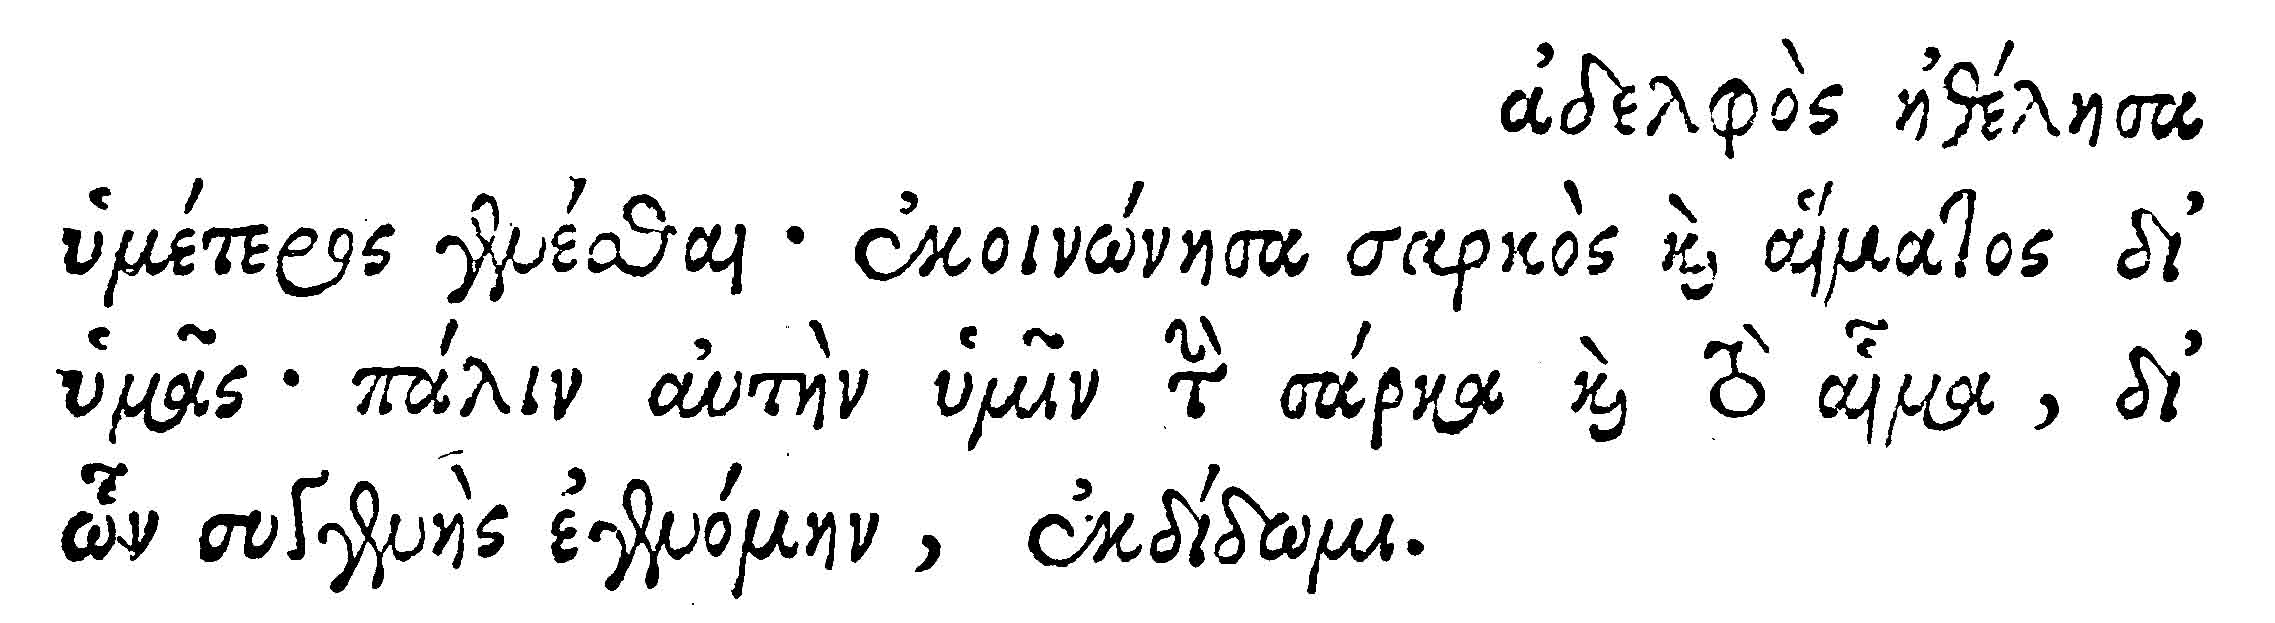 ἀδελφὸς ἠθέλησα
ὑμέτερος γενέσθαι· ἐκοινώνησα σαρκὸς ϗ̀ αἵματος δι’
ὑμᾶς· πάλιν αὐτὴν ὑμῖν τὴν σάρκα ϗ̀ τὸ αἷμα, δι’
ὧν συγγενὴς ἐγενόμην, ἐκδίδωμι.